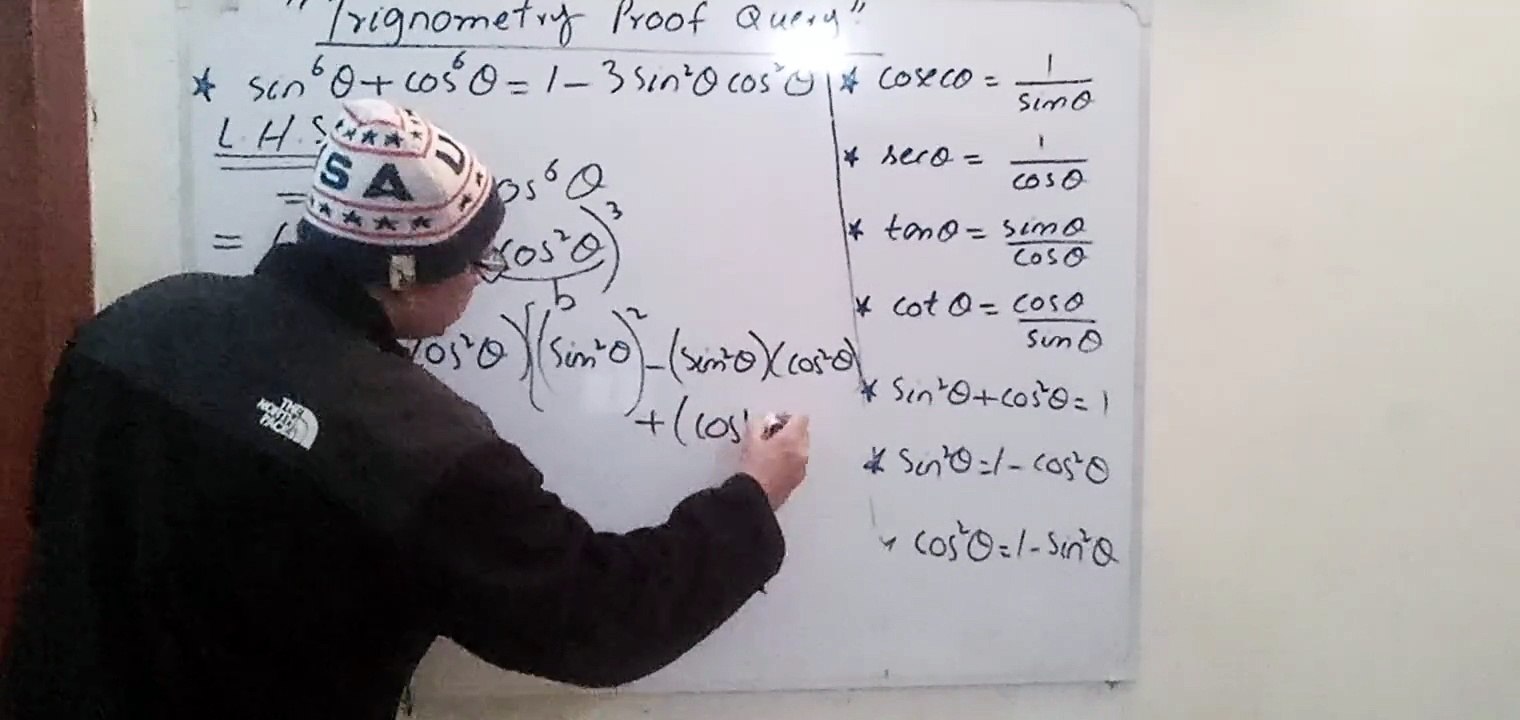 "Trignometry Proof Query"
* sin⁶θ + cos⁶θ = 1 - 3 sin²θ cos²θ
L.H.S
= os⁶θ
= ( cos²θ)³
b
cos²θ)[(sin²θ)² - (sin²θ)(cos²θ)
+ (cos
* cosecθ = 1/sinθ
* secθ = 1/cosθ
* tanθ = sinθ/cosθ
* cotθ = cosθ/sinθ
* sin²θ + cos²θ = 1
* sin²θ = 1 - cos²θ
cos²θ = 1 - sin²θ
U S A
THE
NORTH
FACE